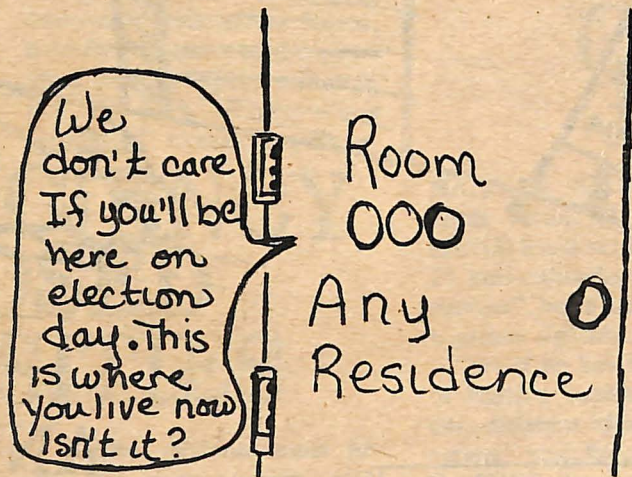 We
don't care
If you'll be
here on
election
day. This
is where
you live now
isn't it?
Room
000
Any
Residence